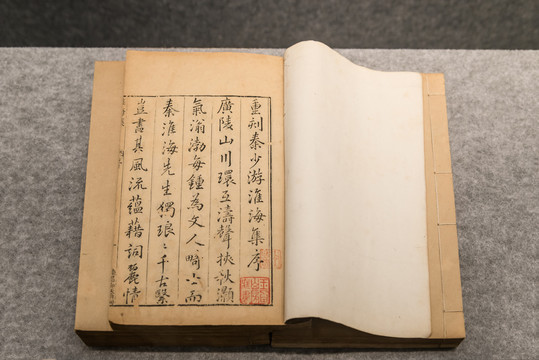 重刻秦少游淮海集序
廣陵山川環互濤聲挾秋灝
氣滃渤每鍾為文人畸士而
秦淮海先生獨琅〻千古緊
豈書其風流蘊藉詞麗情